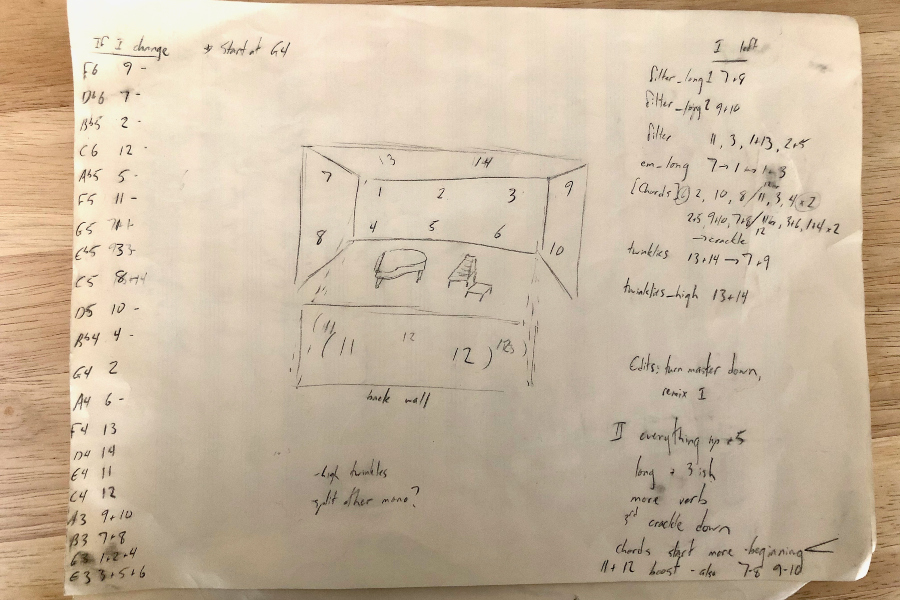 If I change
→ Start at G4
F6 9 -
Db6 7 -
Bb5 2 -
C6 12 -
Ab5 5 -
F5 11 -
G5
Eb5
C5
D5 10 -
Bb4 4 -
G4 2
A4 6 -
F4 13
D4 14
E4 11
C4 12
A3 9+10
B3 7+8
1+2+4
E3 3+5+6
13 14
7 1 2 3 9
8 4 5 6 10
(11
(11 12 12)
back wall
-high twinkles
split other mono?
I left
filter_long1 7+9
filter_long2 9+10
filter 11, 3, 1+13, 2+5
em_long 7→1 1→3
[Chords] 2, 10, 8/11, 3, 4 x2
2+5, 9+10, 7+8/11, 3+6, 1+4 x2
12
→crackle
twinkles 13+14 → 7+9
twinkles_high 13+14
Edits: turn master down,
remix I
II everything up +5
long + 3 ish
more verb
crackle down
chords start more -beginning
11 + 12 boost - also 7-8 9-10